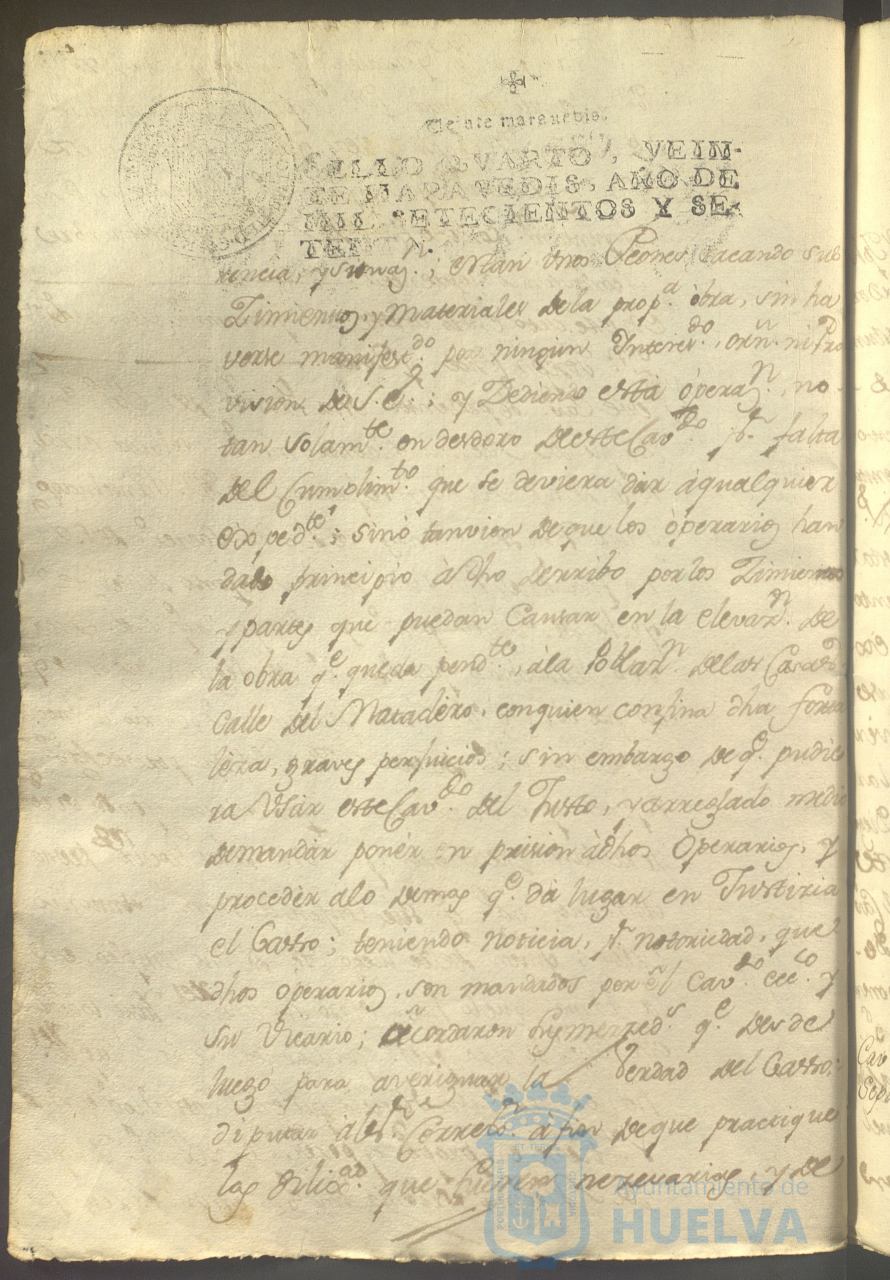 Veinte maravedis.
SELLO QVARTO, VEIN-
TE MARAVEDIS, AÑO DE
MIL SETECIENTOS Y SE-
TENTA.
estan unos Peones sacando
Zimientos, y Materiales de la prop.ª obra, sin ha
verse manifest.do por ningun Interes.do, orñ. ni Pro
vision de S.E.; y Zediendo esta òperaz.n, no
tan solam.te en desdoro de este Cav.do p.r falta
del Cumplim.to que se deviera dar àqualquier
; sinò tanvien de que los òperarios han
dado principio à dho derribo por los Zimientos
y partes que puedan Causar en la elevaz.n de
la obra q.e queda pend.te, àla Poblaz.n de las Casas
Calle del Matadèro, con quien confina dha forta
lèza, graves perjuicios; sin embargo de q.e pudie
ra Usàr este Cav.do del Justo, y arreglado medio
de mandàr ponèr en prision àdhos Operarios, y
procedèr alo demas q.e dà lugar en Justizia
el Casso; teniendo noticia, p.r notoriedad, que
dhos operarios, son mandados por el Cav.do ecc.co y
su Vicario; acordaron sus merzed.s q.e desde
luego para averiguar la Verdad del Casso;
diputar àl S.r Correx.r à fin de que practique
las dilix.as que fueren nezesarias, y de
Ayuntamiento de
HUELVA